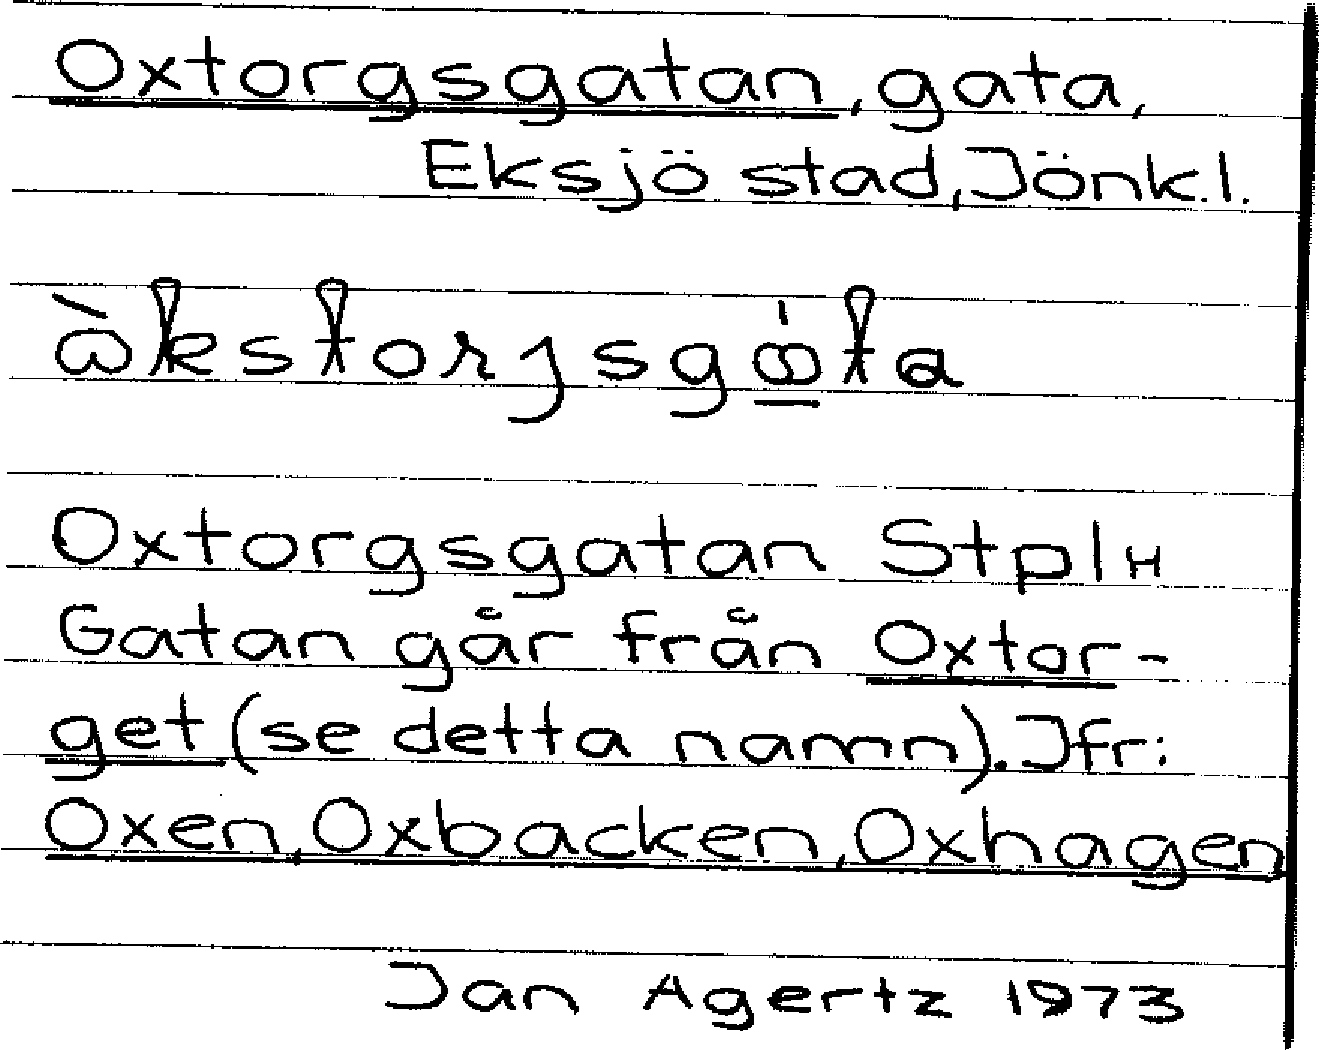 Oxtorgsgatan, gata,
Eksjö stad, Jönk.l.
Oxtorgsgatan Stpln
Gatan går från Oxtor-
get (se detta namn). Jfr:
Oxen, Oxbacken, Oxhagen
Jan Agertz 1973